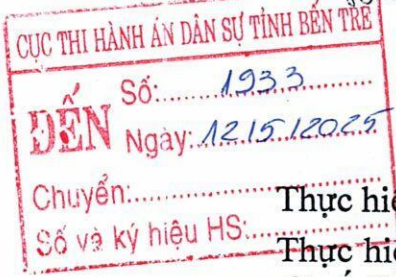 CỤC THI HÀNH ÁN DÂN SỰ TỈNH BẾN TRE
ĐẾN
Số:.......1933.......
Ngày:.12/5/2025
Chuyển:.......................
Thực hiệ
Số và ký hiệu HS:...........
Thực hiệ